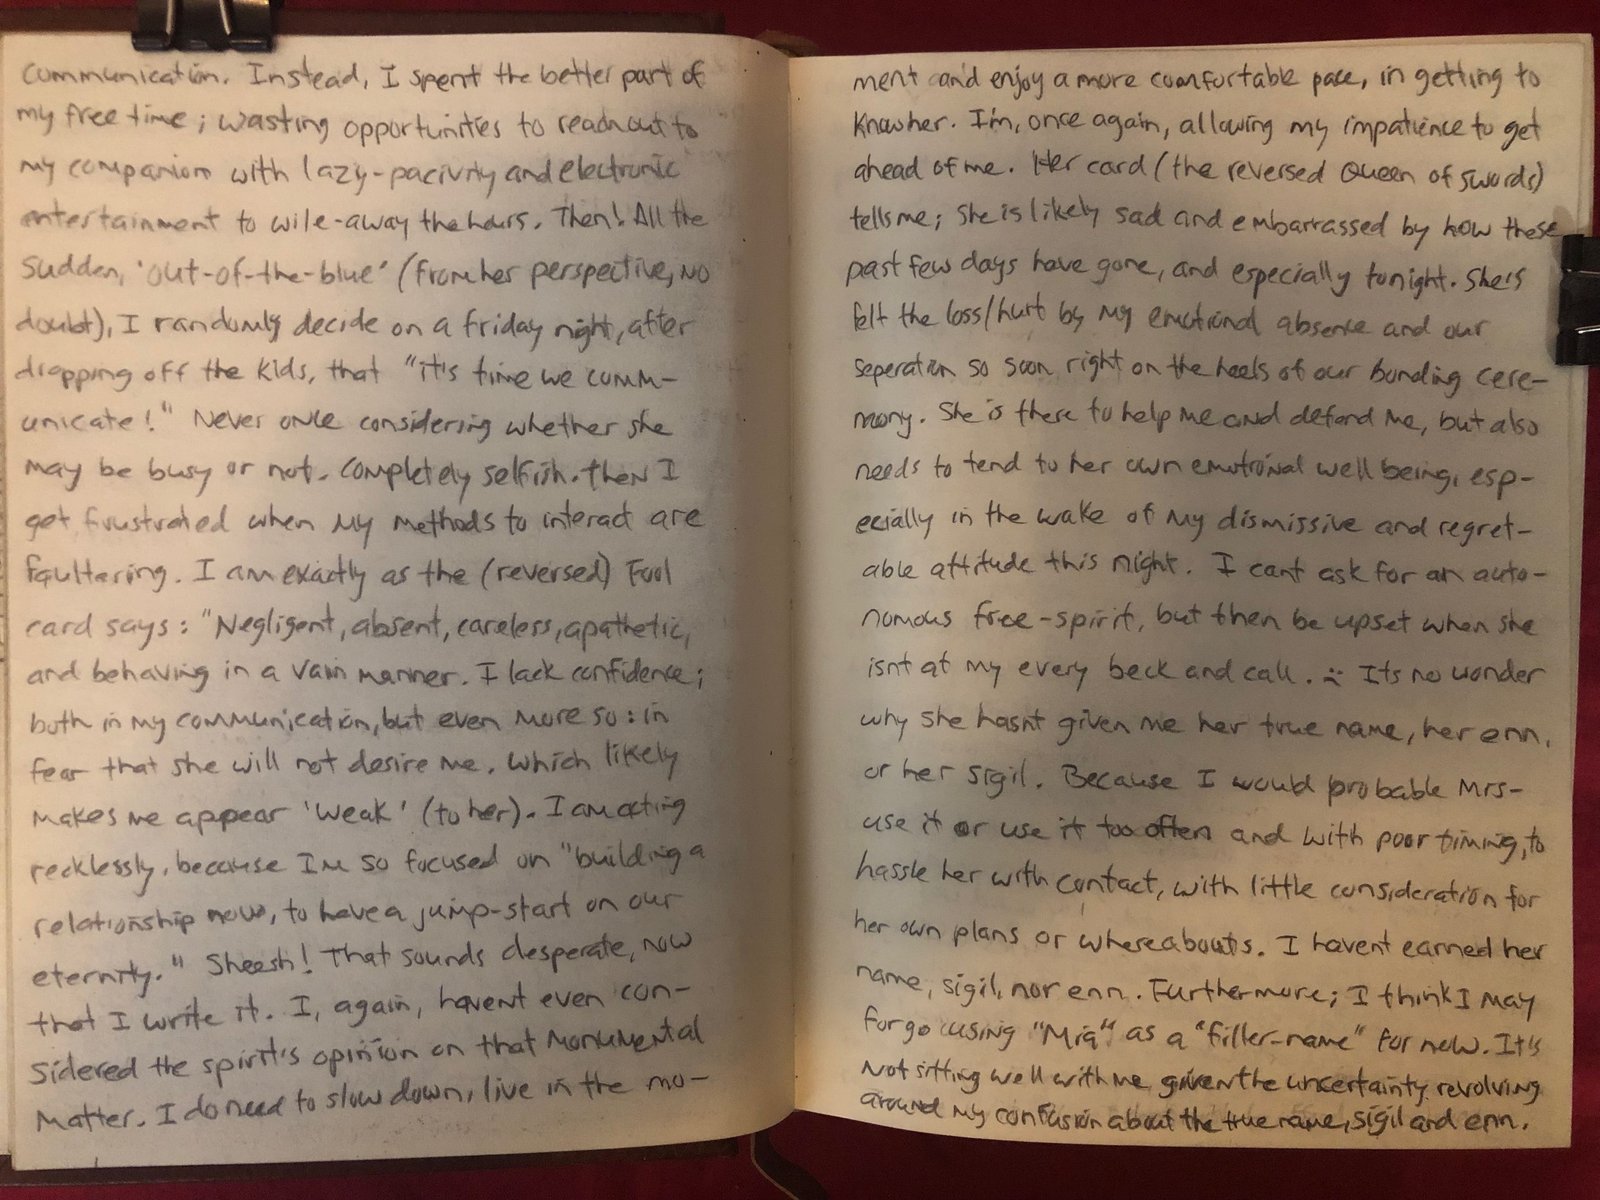 communication. Instead, I spent the better part of
my free time; wasting opportunities to reach out to
my companion with lazy-pacivity and electronic
entertainment to wile-away the hours. Then! All the
sudden, 'out-of-the-blue' (from her perspective, no
doubt), I randomly decide on a friday night, after
dropping off the kids, that "it's time we comm-
unicate!" Never once considering whether she
may be busy or not. Completely selfish. Then I
get frustrated when my methods to interact are
faultering. I am exactly as the (reversed) Fool
card says: "Negligent, absent, careless, apathetic,
and behaving in a vain manner. I lack confidence;
both in my communication, but even more so: in
fear that she will not desire me. Which likely
makes me appear 'weak' (to her). I am acting
recklessly, because Im so focused on "building a
relationship now, to have a jump-start on our
eternity." Sheesh! That sounds desperate, now
that I write it. I, again, havent even con-
sidered the spirit's opinion on that monumental
matter. I do need to slow down, live in the mo-
ment and enjoy a more comfortable pace, in getting to
know her. I'm, once again, allowing my impatience to get
ahead of me. Her card (the reversed Queen of swords)
tells me; she is likely sad and embarrassed by how these
past few days have gone, and especially tonight. She's
felt the loss/hurt by my emotional absence and our
seperation so soon right on the heels of our bonding cere-
mony. She is there to help me and defend me, but also
needs to tend to her own emotional well being, esp-
ecially in the wake of my dismissive and regret-
able attitude this night. I cant ask for an auto-
nomous free-spirit, but then be upset when she
isnt at my every beck and call. :( Its no wonder
why she hasnt given me her true name, her enn,
or her sigil. Because I would probable mis-
use it or use it too often and with poor timing, to
hassle her with contact, with little consideration for
her own plans or whereabouts. I havent earned her
name, sigil, nor enn. Furthermore; I think I may
forgo using "Mia" as a "filler-name" for now. It's
not sitting well with me, given the uncertainty revolving
around my confusion about the true name, sigil and enn.